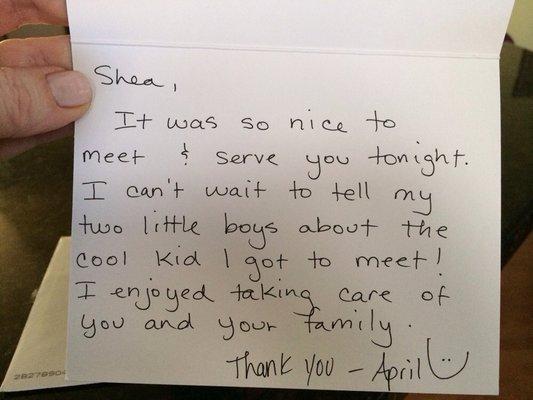 Shea,
It was so nice to
meet & serve you tonight.
I can't wait to tell my
two little boys about the
cool kid I got to meet!
I enjoyed taking care of
you and your family.
Thank you - April